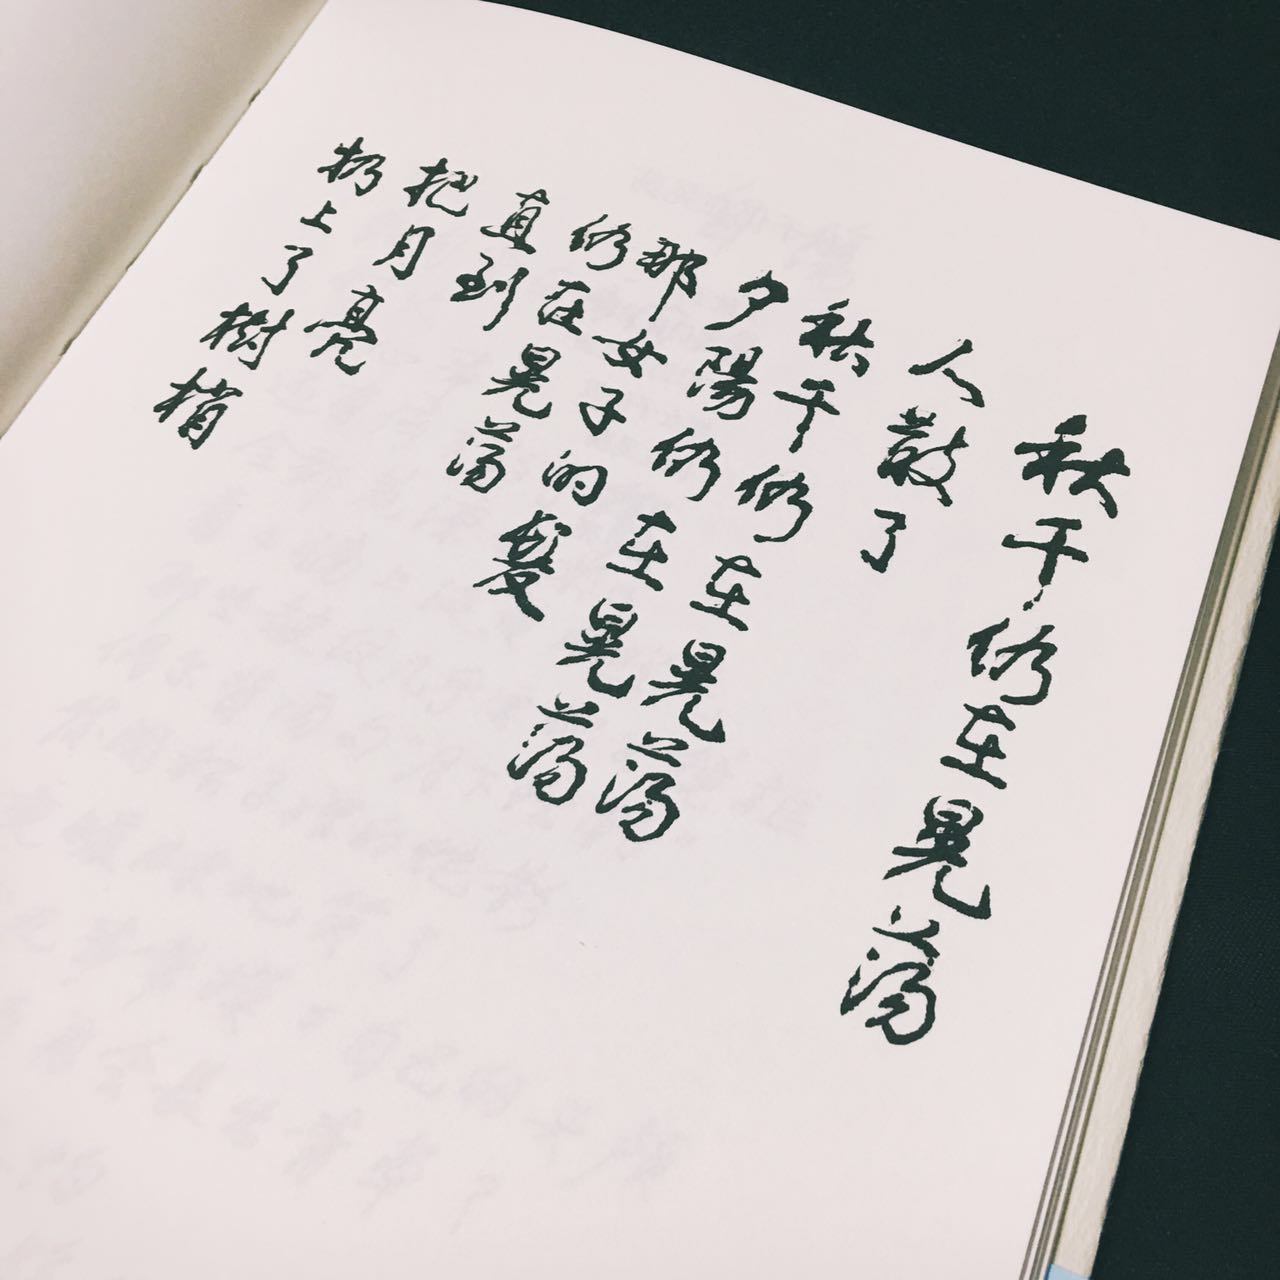 秋千仍在晃蕩
人散了
秋千仍在晃蕩
夕陽仍在晃蕩
那女子的髮
仍在晃蕩
直到
把月亮
扔上了樹梢